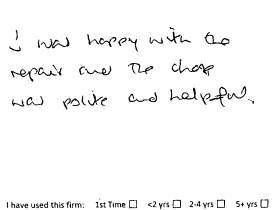 I was happy with the
repair and the chap
was polite and helpful.
I have used this firm: 1st Time ☐ <2 yrs ☐ 2-4 yrs ☐ 5+ yrs ☐